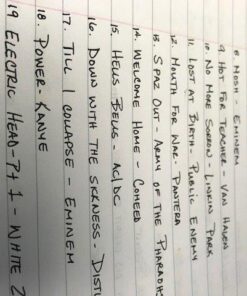 8. MOSH - EMINEM
9 HOT FOR TEACHER VAN HALEN
10. NO MORE SORROW - LINKIN PARK
11. LOST AT BIRTH - PUBLIC ENEMY
12 MOUTH FOR WAR - PANTERA
13. SPAZ OUT - ARMY OF THE PHARAOHS
14. WELCOME HOME - COHEED
15. HELLS BELLS - AC/DC
16. DOWN WITH THE SICKNESS DISTU
17. TILL I COLLAPSE - EMINEM
18. POWER - KANYE
19 ELECTRIC HEAD - PT 1 - WHITE Z